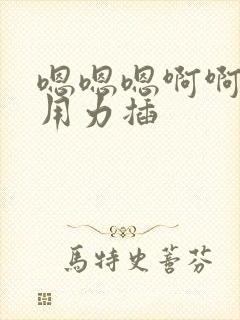 嗯嗯嗯啊啊
用力插
馬特史蒼芬